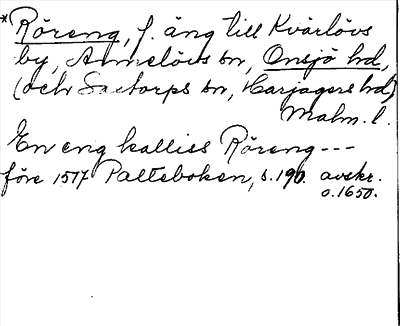 *Röreng, f. äng till Kvärlövs
by, Annelövs sn, Onsjö hd,
(och Saxtorps sn, Harjagers hd)
Malm. l.
En eng kalliss Röreng---
före 1517 Palteboken, s.190. avskr.
o.1650.